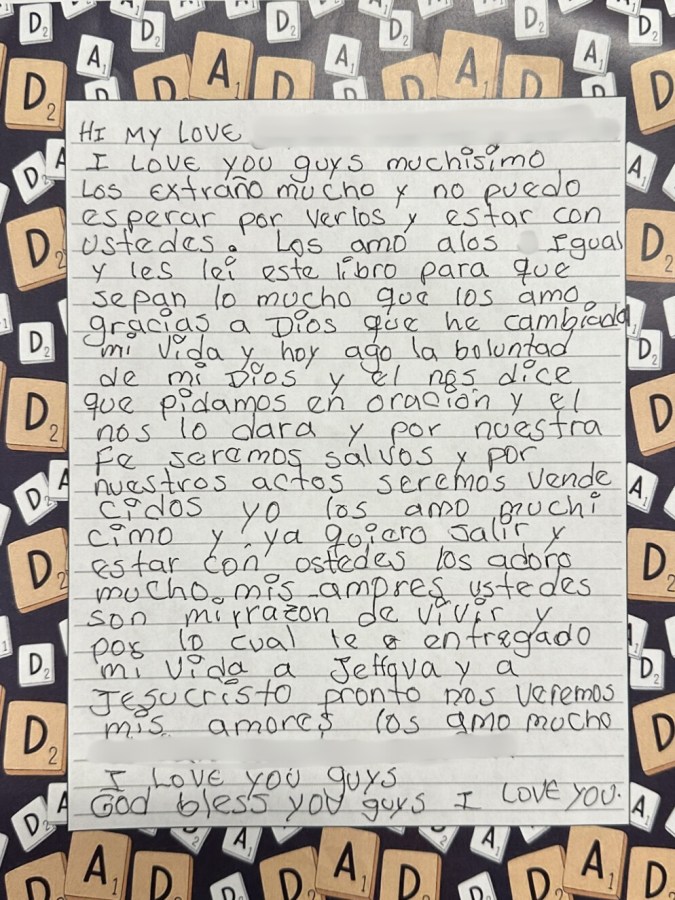 HI MY LOVE
I LOVE you guys muchisimo
Los extraño mucho y no puedo
esperar por verlos y estar con
ustedes. Los amo alos Igual
y les leí este libro para que
sepan lo mucho que los amo.
gracias a Dios que he cambiado
mi vida y hoy ago la boluntad
de mi Dios y el nos dice
que pidamos en oración y el
nos lo dara y por nuestra
Fe seremos salvos y por
nuestros actos seremos vende
cidos yo los amo muchi
cimo y ya quiero salir y
estar con ostedes los adoro
mucho. mis ampres ustedes
son mirrazon de vivir y
por lo cual le e entregado
mi vida a Jeffova y a
Jesucristo pronto nos veremos
mis amores los amo mucho
I LOVE you guys
God bless you guys I LOVE YOU.